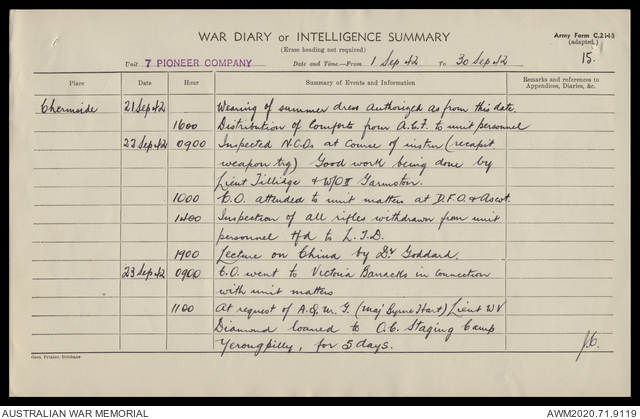 WAR DIARY or INTELLIGENCE SUMMARY
Army Form C.2118
(adapted.)
(Erase heading not required)
15.
Unit 7 PIONEER COMPANY Date and Time.—From 1 Sep 42 To 30 Sep 42
Place Date Hour Summary of Events and Information Remarks and references to Appendices, Diaries, &c.
Chermside 21 Sep 42 Wearing of summer dress authorized as from this date.
1600 Distribution of Comforts from A.C.F. to unit personnel
22 Sep 42 0900 Inspected N.C.Os at course of instrn (recapit
weapon trg) Good work being done by
Lieut Tillidge & W/O II Garmston.
1000 C.O. attended to unit matters at D.F.O. & Ascot.
1400 Inspection of all rifles withdrawn from unit
personnel tfd to L.T.D.
1900 Lecture on China by Dr Goddard.
23 Sep 42 0900 C.O. went to Victoria Barracks in connection
with unit matters
1100 At request of A.Q.M.G. (Maj Byrne Hart) Lieut WV
Diamond loaned to O.C. Staging Camp
Yerongpilly, for 5 days.
J.C.
Govt. Printer, Brisbane
AUSTRALIAN WAR MEMORIAL
AWM2020.71.9119